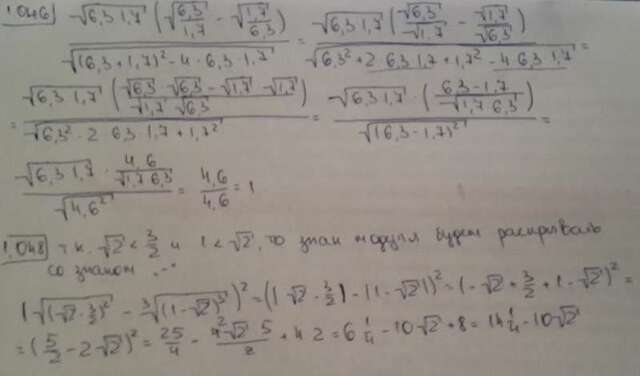 1.046) √(6,3·1,7) (√(6,3/1,7) − √(1,7/6,3)) / √((6,3+1,7)² − 4·6,3·1,7) = √(6,3·1,7) (√6,3/√1,7 − √1,7/√6,3) / √(6,3² + 2·6,3·1,7 + 1,7² − 4·6,3·1,7) =
= √(6,3·1,7) ((√6,3·√6,3 − √1,7·√1,7) / (√1,7·√6,3)) / √(6,3² − 2·6,3·1,7 + 1,7²) = √(6,3·1,7) · ((6,3−1,7)/√(1,7·6,3)) / √((6,3−1,7)²) =
√(6,3·1,7) · 4,6/√(1,7·6,3) / √(4,6²) = 4,6/4,6 = 1
1.048) т.к. √2 < 3/2 и 1 < √2, то знак модуля будем раскрывать
со знаком "-"
(√((√2 − 3/2)²) − ³√((1−√2)³))² = (|√2 − 3/2| − |1−√2|)² = (−√2 + 3/2 + 1 − √2)² =
= (5/2 − 2√2)² = 25/4 − 4²√2·5/2 + 4·2 = 6 1/4 − 10√2 + 8 = 14 1/4 − 10√2